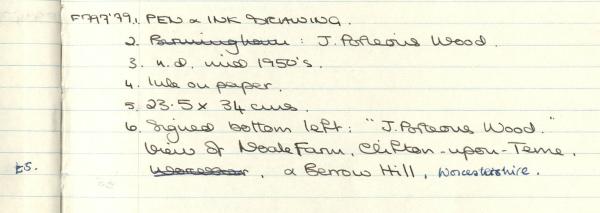 F797'79. 1. PEN & INK DRAWING.
2. Birmingham : J. Porteous Wood.
3. n.d. mid 1950's.
4. Ink on paper.
5. 23.5 x 34 cms.
6. Signed bottom left: "J. Porteous Wood."
View of Noake Farm, Clifton-upon-Teme,
£5. Worcester, & Berrow Hill, Worcestershire.